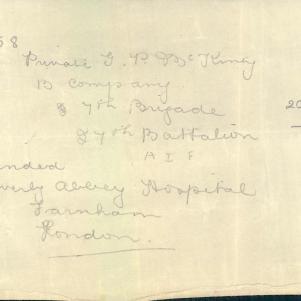 58
Private G. P. McKiney
B Company
7th Brigade
27th Battalion
A I F
nded
verly Abbey Hospital
Farnham
London.
20